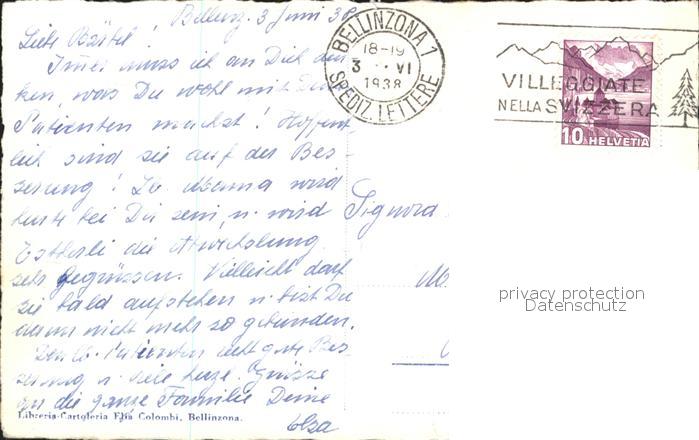 Bellinz. 3 Juni 38
Liebs Bäbel!
Immer muss ich an Dich den-
ken, was Du wohl mit Dein
Patienten machst! Hoffent-
lich sind sie auf der Bes-
serung! Lb. Mama wird
heute bei Dir sein, u. wird
Estherli die Abwechslung
sehr begrüssen. Vielleicht darf
sie bald aufstehen u. bist Du
dann nicht mehr so gebunden.
Den lb. Patienten recht gute Bes-
serung u. viele herzl. Grüsse
an die ganze Familie Deine
Elsa
Libreria-Cartoleria Elia Colombi, Bellinzona.
BELLINZONA 1
18-19
3 VI
1938
SPEDIZ. LETTERE
VILLEGGIATE
NELLA SVIZZERA
10 HELVETIA
Signora
M
privacy protection
Datenschutz